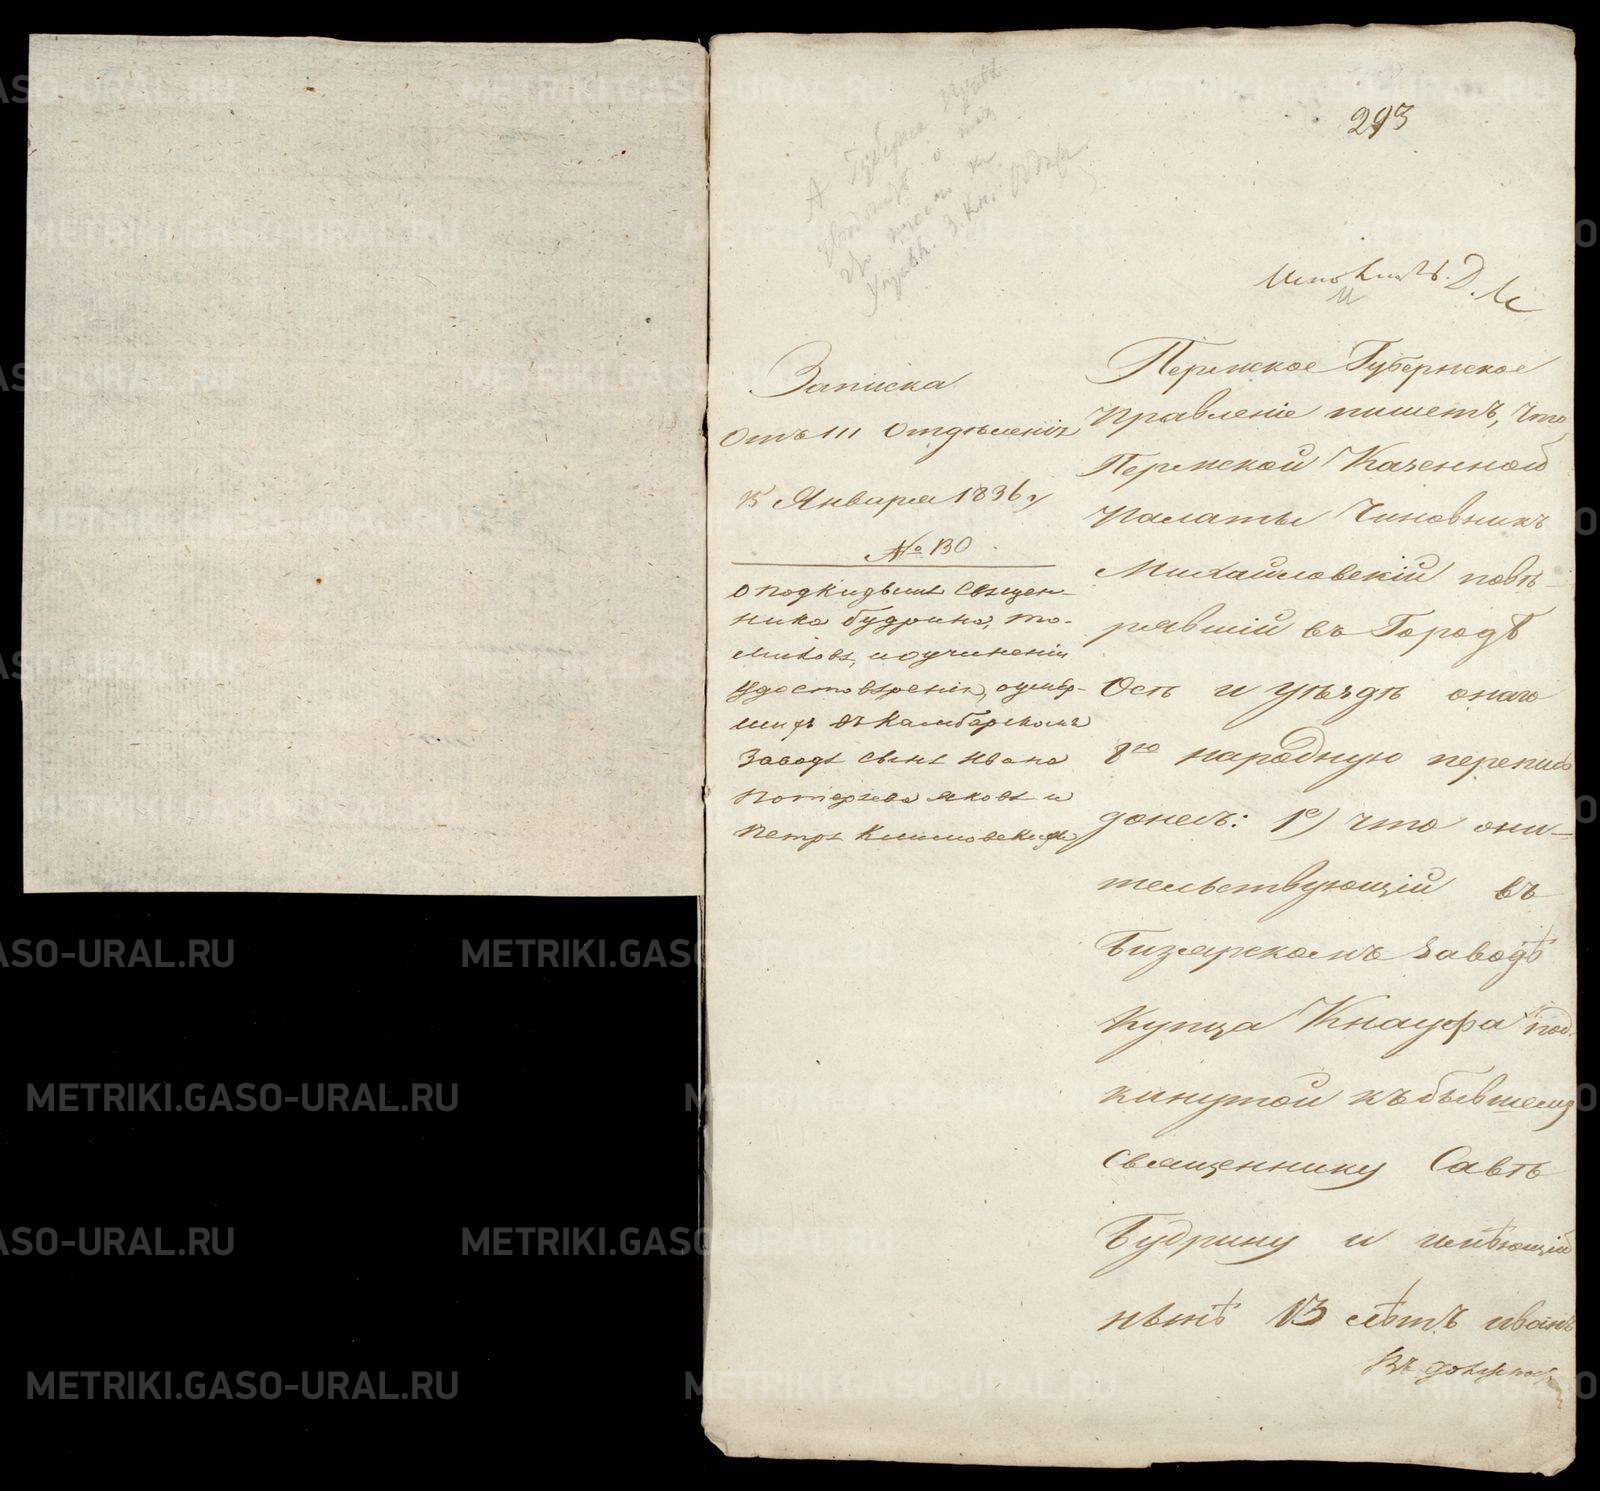 293
А Губерн. Правл.
Записка
Отъ III Отдѣленія
15 Января 1836 г.
№ 130
о подкидышѣ Священ-
ника Будрина, То-
милов, и о учиненіи
удостовѣренія, о умер-
шихъ въ Камбарскомъ
Заводѣ сынѣ Ивана
Потерпева Яковѣ и
Петрѣ Климовскихъ
Пермское Губернское
Правленіе пишетъ, что
Пермской Казенной
Палаты Чиновникъ
Михайловскій повѣ-
рявшій въ Городѣ
Осѣ и уѣздѣ онаго
8ю народную перепись
донесъ: 1е) что оби-
тельствующій въ
Бизярскомъ Заводѣ
Купца Кнауфа под-
кинутой къ бывшему
Священнику Саввѣ
Будрину и имѣющій
нынѣ 13 лѣтъ Иванъ
METRIKI.GASO-URAL.RU